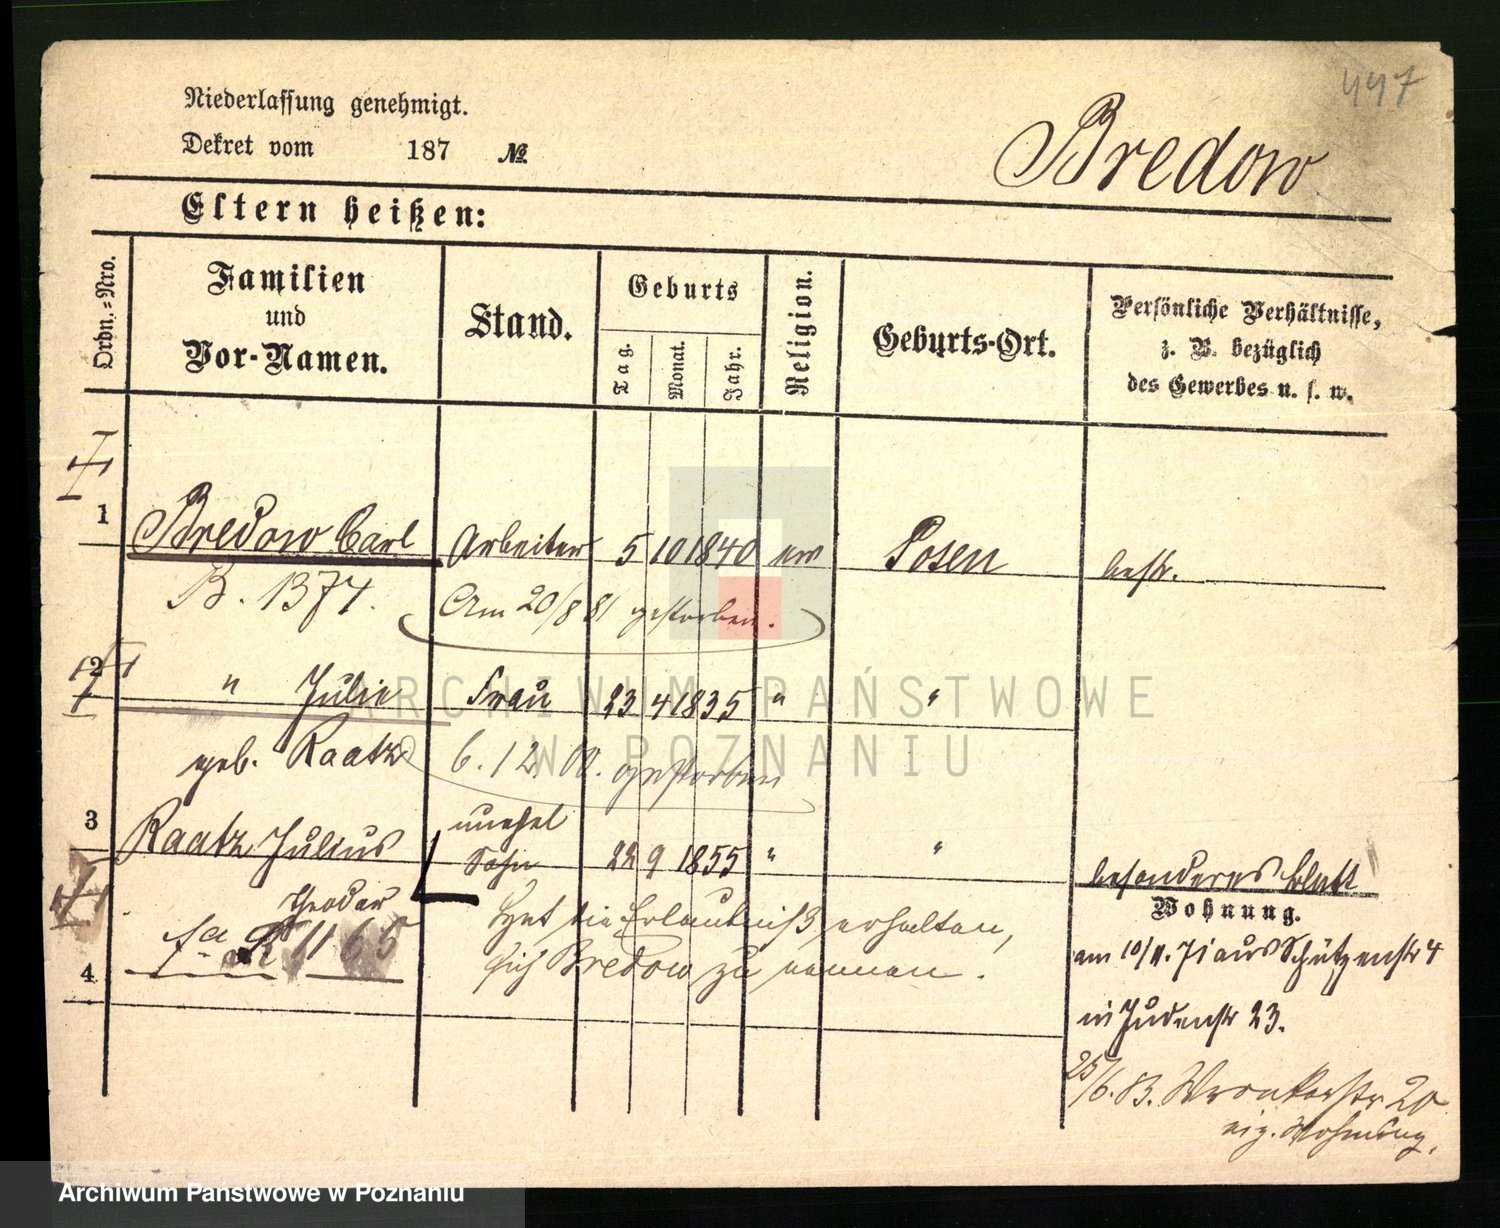 447
Niederlassung genehmigt.
Dekret vom 187 №
Bredow
Eltern heißen:
Ordn.-Nro.
Familien
und
Vor-Namen.
Stand.
Geburts
Tag.
Monat.
Jahr.
Religion.
Geburts-Ort.
Persönliche Verhältnisse,
z. B. bezüglich
des Gewerbes u. s. w.
1 Bredow Carl Arbeiter 5 10 1840 ev Posen bestr.
B. 1374. Am 20/8 81 gestorben.
2 " Julie Frau 23 4 1835 " "
geb. Raatz 6. 12. 00. gestorben
3 Raatz Julius unehel
Sohn 22 9 1855 " " besonderes Blatt
Theodor Hat die Erlaubniß erhalten,
1165
4 sich Bredow zu nennen.
Wohnung.
am 10/4. 71 aus Schützenstr 4
in Judenstr 23.
25/6. 83. Wronkerstr 20
eig. Wohnung.
ARCHIWUM PAŃSTWOWE
W POZNANIU
Archiwum Państwowe w Poznaniu